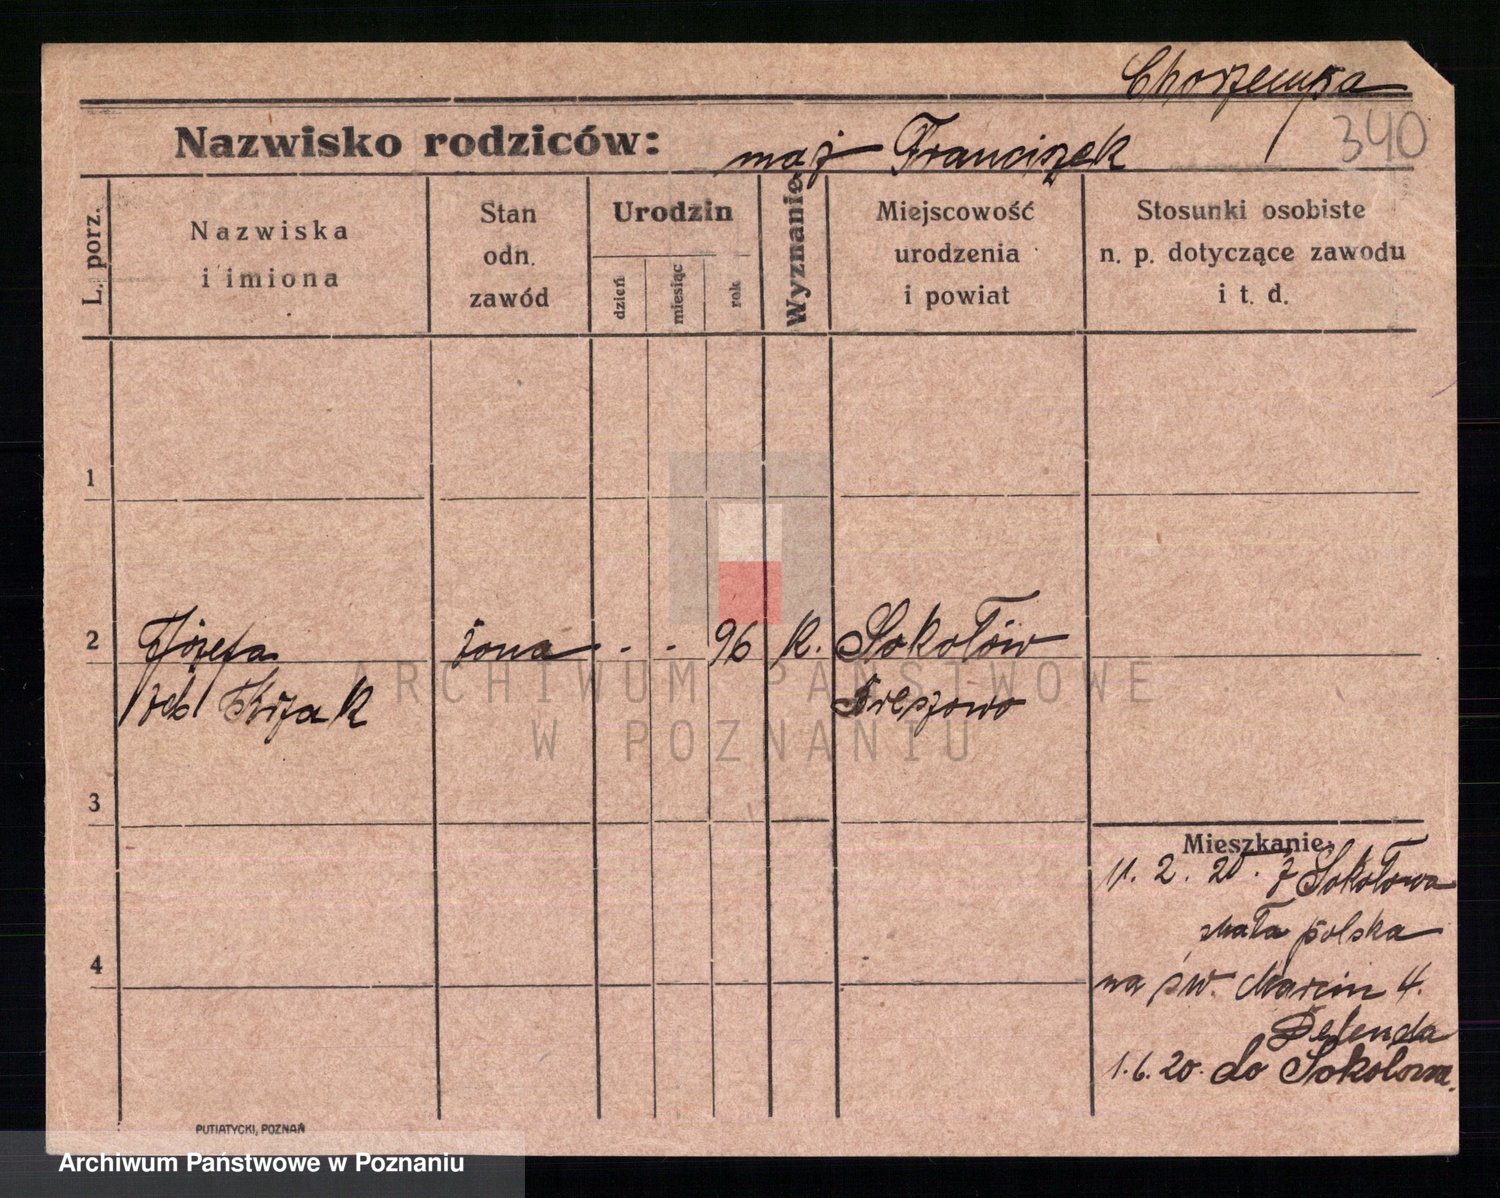 Chorzemska
340
Nazwisko rodziców: mąż Franciszek
L. porz.
Nazwiska
i imiona
Stan
odn.
zawód
Urodzin
dzień
miesiąc
rok
Wyznanie
Miejscowość
urodzenia
i powiat
Stosunki osobiste
n. p. dotyczące zawodu
i t. d.
1
2 Józefa żona . . 96 k. Sokołów
3
4
Mieszkanie
11. 2. 20. z Sokołowa
Mała polska
na św. Marcin 4.
1.6.20. do Sokołowa.
PUTIATYCKI, POZNAŃ
ARCHIWUM PAŃSTWOWE
W POZNANIU
Archiwum Państwowe w Poznaniu